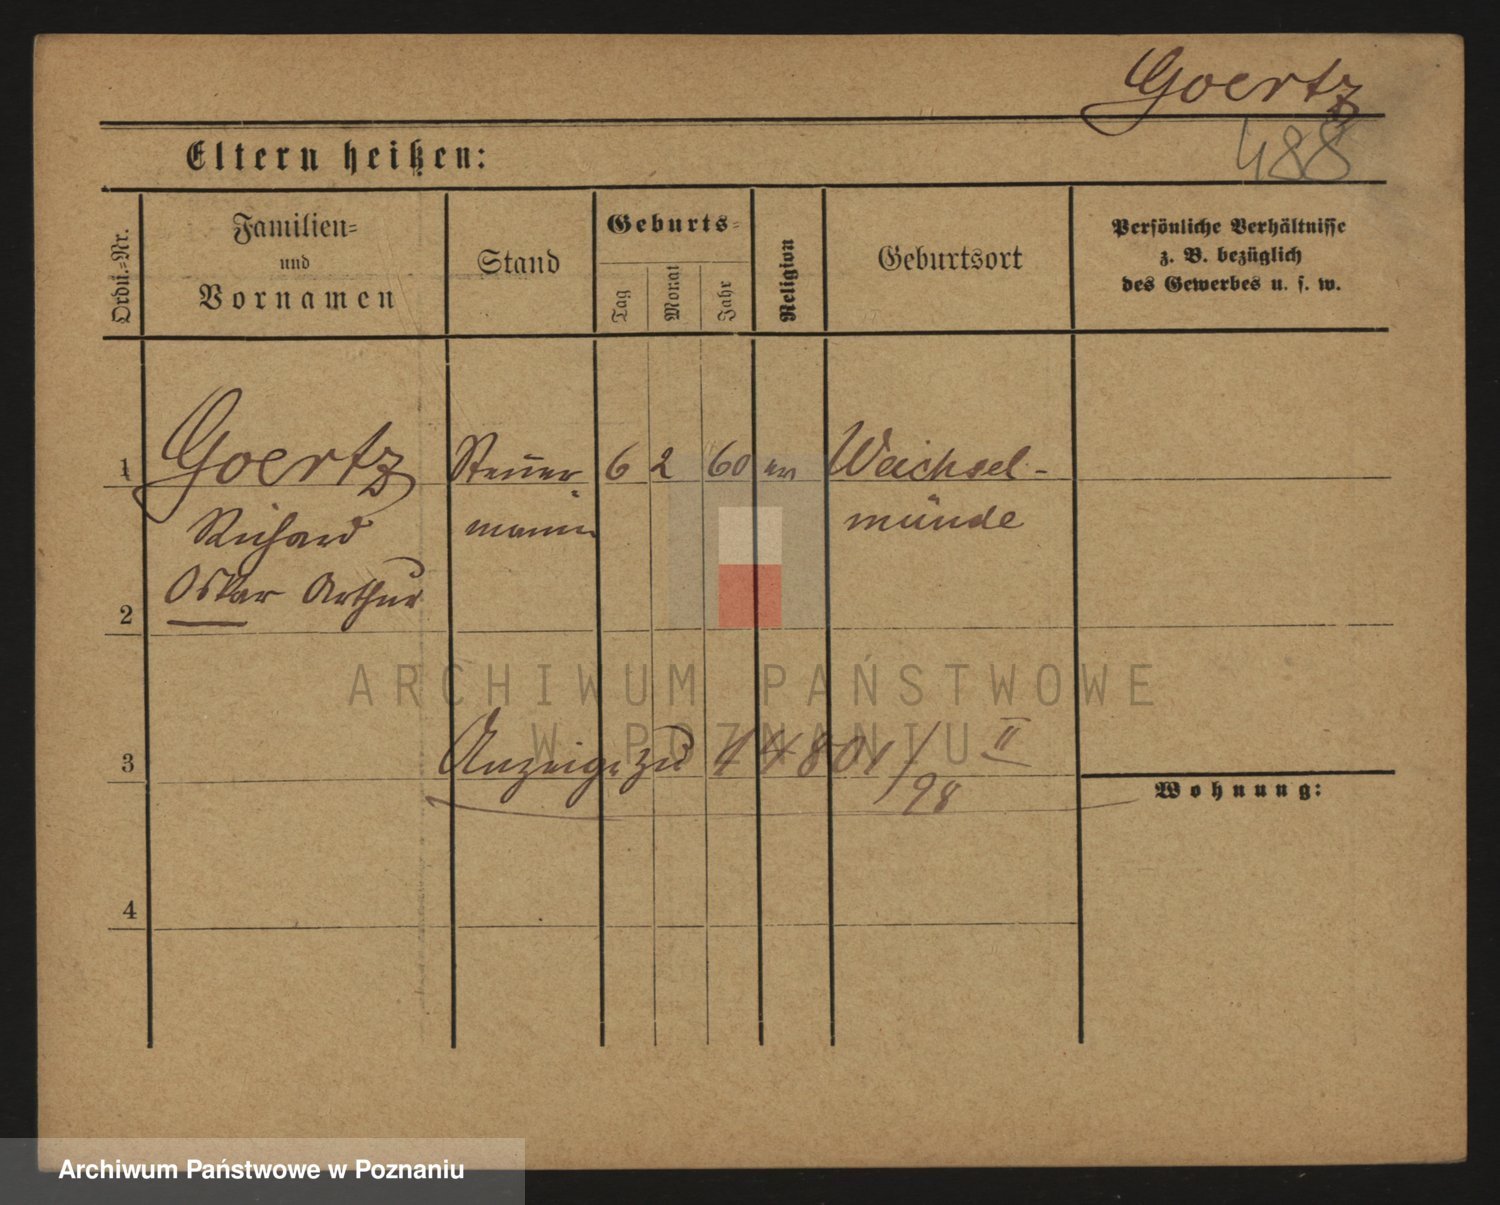 Goertz
488
Eltern heißen:
Ordn.-Nr.
Familien-
und
Vornamen
Stand
Geburts-
Tag
Monat
Jahr
Religion
Geburtsort
Persönliche Verhältnisse
z. B. bezüglich
des Gewerbes u. s. w.
1 Goertz Steuer 6 2 60 ev Weichsel-
Richard mann münde
2 Oskar Arthur
ARCHIWUM PAŃSTWOWE
W POZNANIU
3 Anzeige zu 14801/98 II
Wohnung:
4
Archiwum Państwowe w Poznaniu